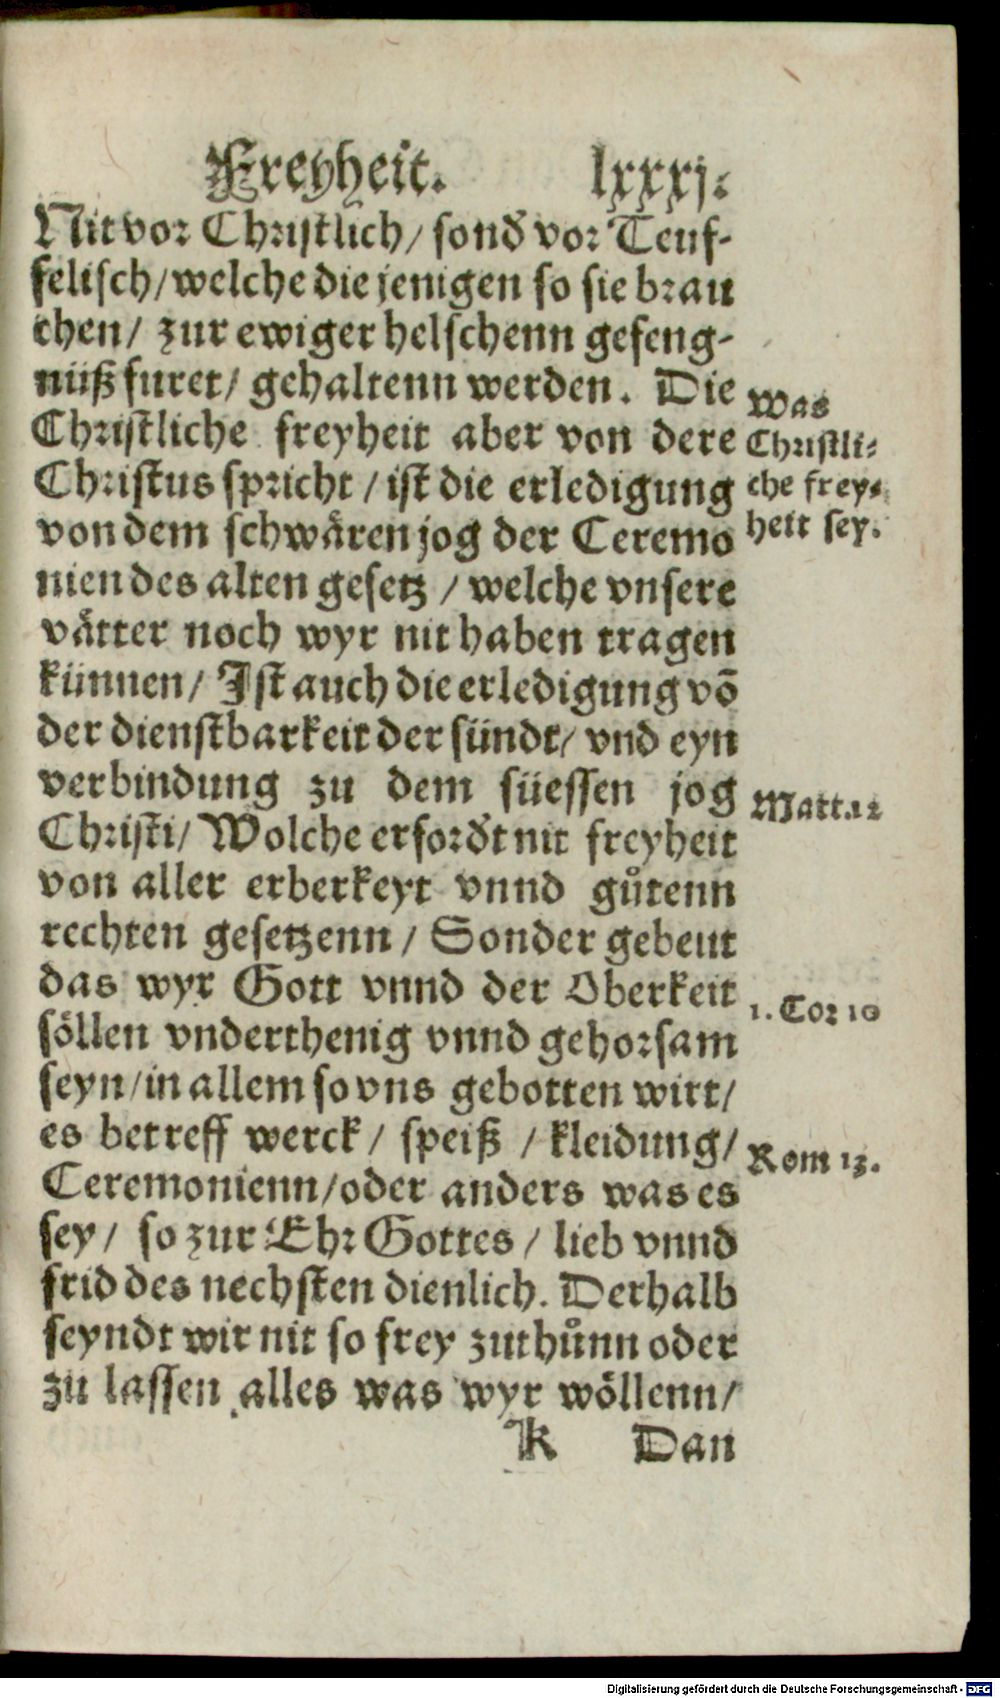 Freyheit. lxxxj.
Nit vor Christlich/ sond̕ vor Teuf-
felisch/welche die jenigen so sie brau
chen/ zur ewiger helschenn gefeng-
nüß furet/ gehaltenn werden. Die
Christliche freyheit aber von dere
Christus spricht / ist die erledigung
von dem schwären jog der Ceremo
nien des alten gesetz / welche vnsere
vätter noch wyr nit haben tragen
künnen/ Ist auch die erledigung võ
der dienstbarkeit der sündt/ vnd eyn
verbindung zu dem süessen jog
Christi/ Wolche erford̕t nit freyheit
von aller erberkeyt vnnd gůtenn
rechten gesetzenn / Sonder gebeut
das wyr Gott vnnd der Oberkeit
söllen vnderthenig vnnd gehorsam
seyn/in allem so vns gebotten wirt/
es betreff werck / speiß / kleidung/
Ceremonienn/oder anders was es
sey/ so zur Ehr Gottes / lieb vnnd
frid des nechsten dienlich. Derhalb
seyndt wir nit so frey zuthůnn oder
zu lassen alles was wyr wöllenn/
K Dan
Was
Christli-
che frey-
heit sey.
Matt.12
1. Cor 10
Rom 13.
Digitalisierung gefördert durch die Deutsche Forschungsgemeinschaft - DFG